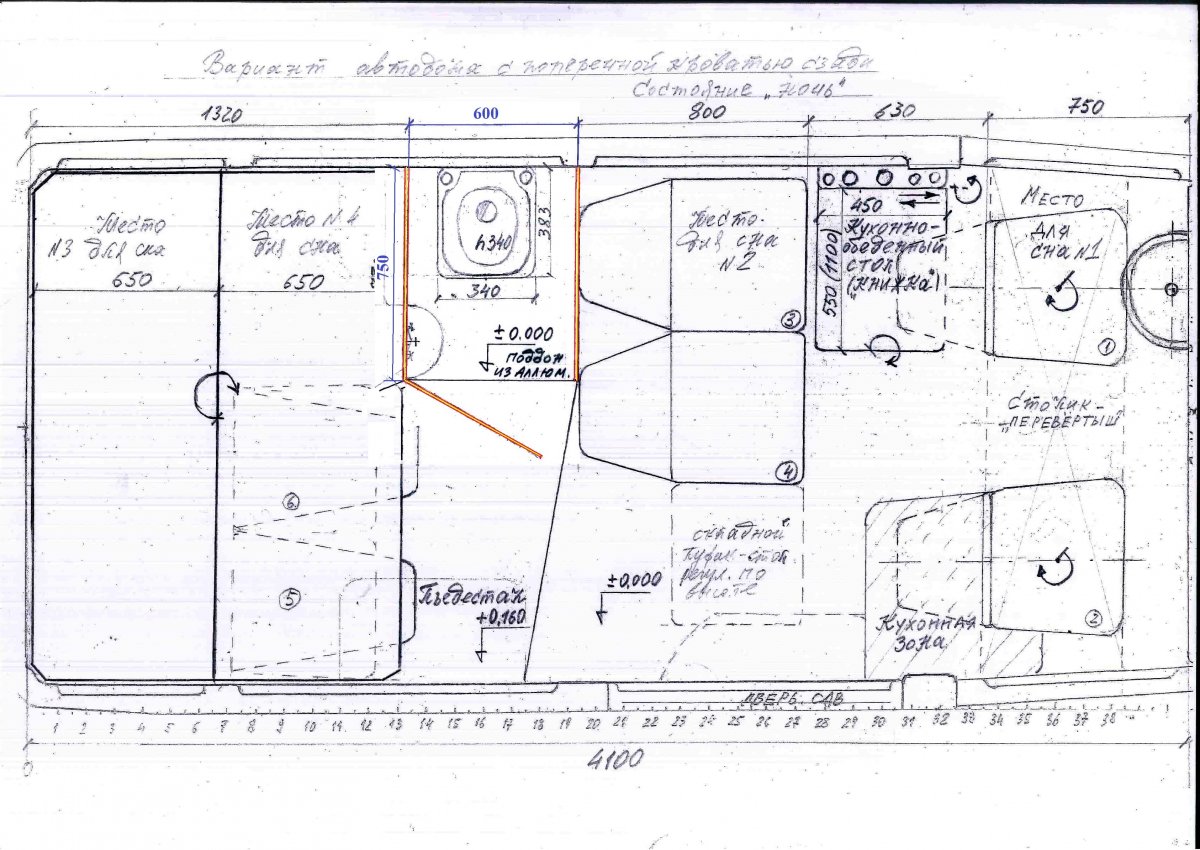 Вариант автодома с поперечной кроватью сзади
Состояние "Ночь"
1320
600
800
630
750
Место
N3 для сна
650
Место N 4
для сна
650
750
h340
383
340
± 0.000
поддон
из аллюм.
Место
для сна
N2
3
4
450
Кухонно-
обеденный
стол
(книжка")
550 (1100)
Место
для
сна N1
1
Столик-
"перевертыш"
6
5
Пьедестал
+0,160
±0,000
складной
регул. по
высоте
Кухонная
зона
2
дверь сдв
1 2 3 4 5 6 7 8 9 10 11 12 13 14 15 16 17 18 19 20 21 22 23 24 25 26 27 28 29 30 31 32 33 34 35 36 37 38
0
4100